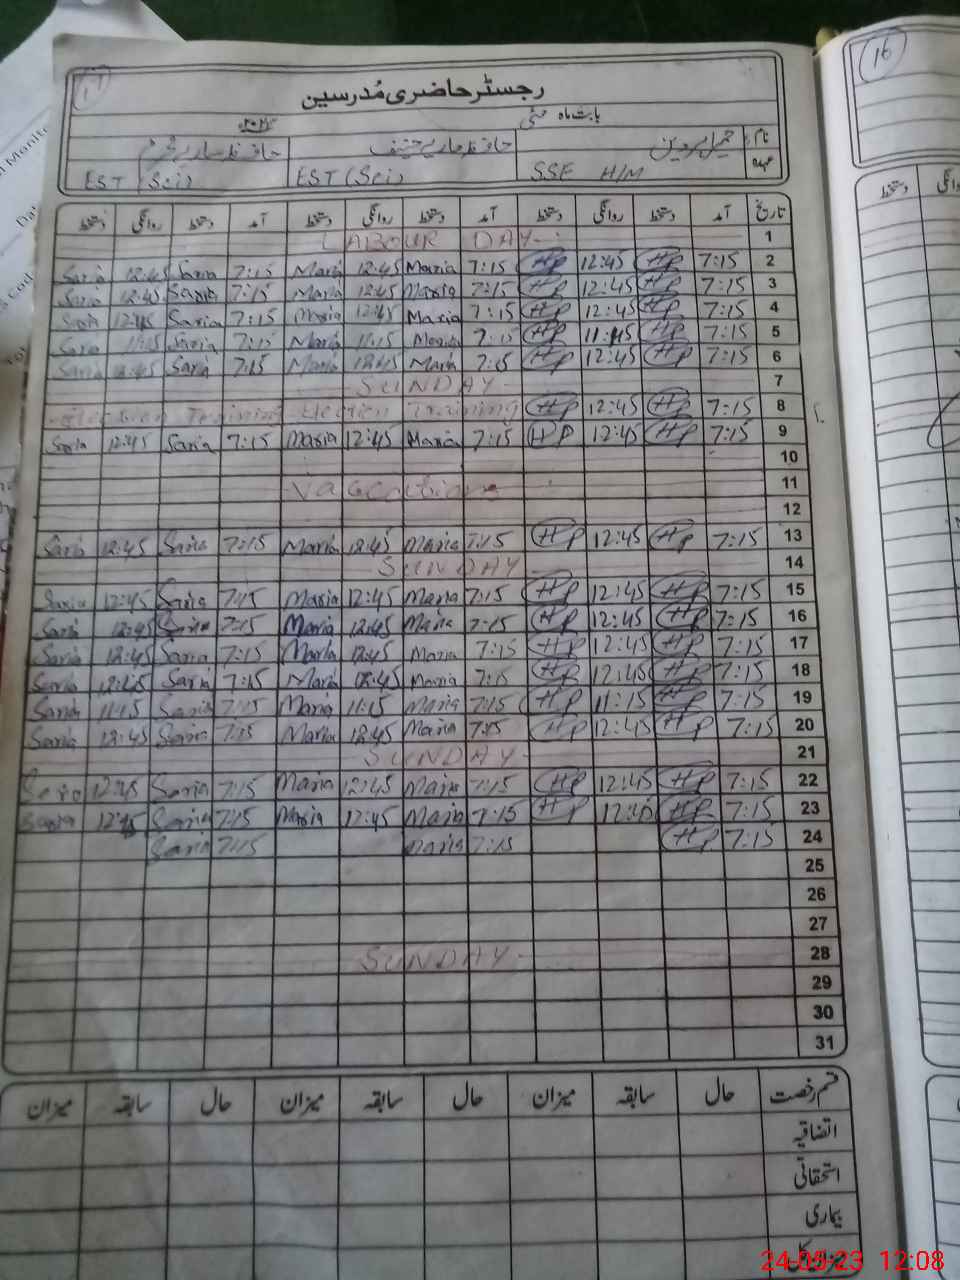 رجسٹر حاضری مُدرسین
بابت ماہ مئی ۲۰۲۳
نام
عہدہ SSE H/M EST (Sci) EST (Sci)
تاریخ آمد دستخط روانگی دستخط آمد دستخط روانگی دستخط آمد دستخط روانگی دستخط
LABOUR DAY 1
Saria 12:45 Saria 7:15 Maria 12:45 Maria 7:15 HP 12:45 HP 7:15 2
Saria 12:45 Saria 7:15 Maria 12:45 Maria 7:15 HP 12:45 HP 7:15 3
Saria 12:45 Saria 7:15 Maria 12:45 Maria 7:15 HP 12:45 HP 7:15 4
Saria 11:15 Saria 7:15 Maria 11:15 Maria 7:15 HP 11:45 HP 7:15 5
Saria 12:45 Saria 7:15 Maria 12:45 Maria 7:15 HP 12:45 HP 7:15 6
SUNDAY 7
Election Training Election Training HP 12:45 HP 7:15 8
Saria 12:45 Saria 7:15 Maria 12:45 Maria 7:15 HP 12:45 HP 7:15 9
10
11
12
Saria 12:45 Saria 7:15 Maria 12:45 Maria 7:15 HP 12:45 HP 7:15 13
SUNDAY 14
Saria 12:45 Saria 7:15 Maria 12:45 Maria 7:15 HP 12:45 HP 7:15 15
Saria 12:45 Saria 7:15 Maria 12:45 Maria 7:15 HP 12:45 HP 7:15 16
Saria 12:45 Saria 7:15 Maria 12:45 Maria 7:15 HP 12:45 HP 7:15 17
Saria 12:45 Saria 7:15 Maria 12:45 Maria 7:15 HP 12:45 HP 7:15 18
Saria 11:15 Saria 7:15 Maria 11:15 Maria 7:15 HP 11:15 HP 7:15 19
Saria 12:45 Saria 7:15 Maria 12:45 Maria 7:15 HP 12:45 HP 7:15 20
SUNDAY 21
Saria 12:45 Saria 7:15 Maria 12:45 Maria 7:15 HP 12:45 HP 7:15 22
Saria 12:45 Saria 7:15 Maria 12:45 Maria 7:15 HP 12:45 HP 7:15 23
Saria 7:15 Maria 7:15 HP 7:15 24
25
26
27
SUNDAY 28
29
30
31
قسم رخصت حال سابقہ میزان حال سابقہ میزان حال سابقہ میزان
اتفاقیہ
استحقاقی
بیماری
16
24-05-23 12:08